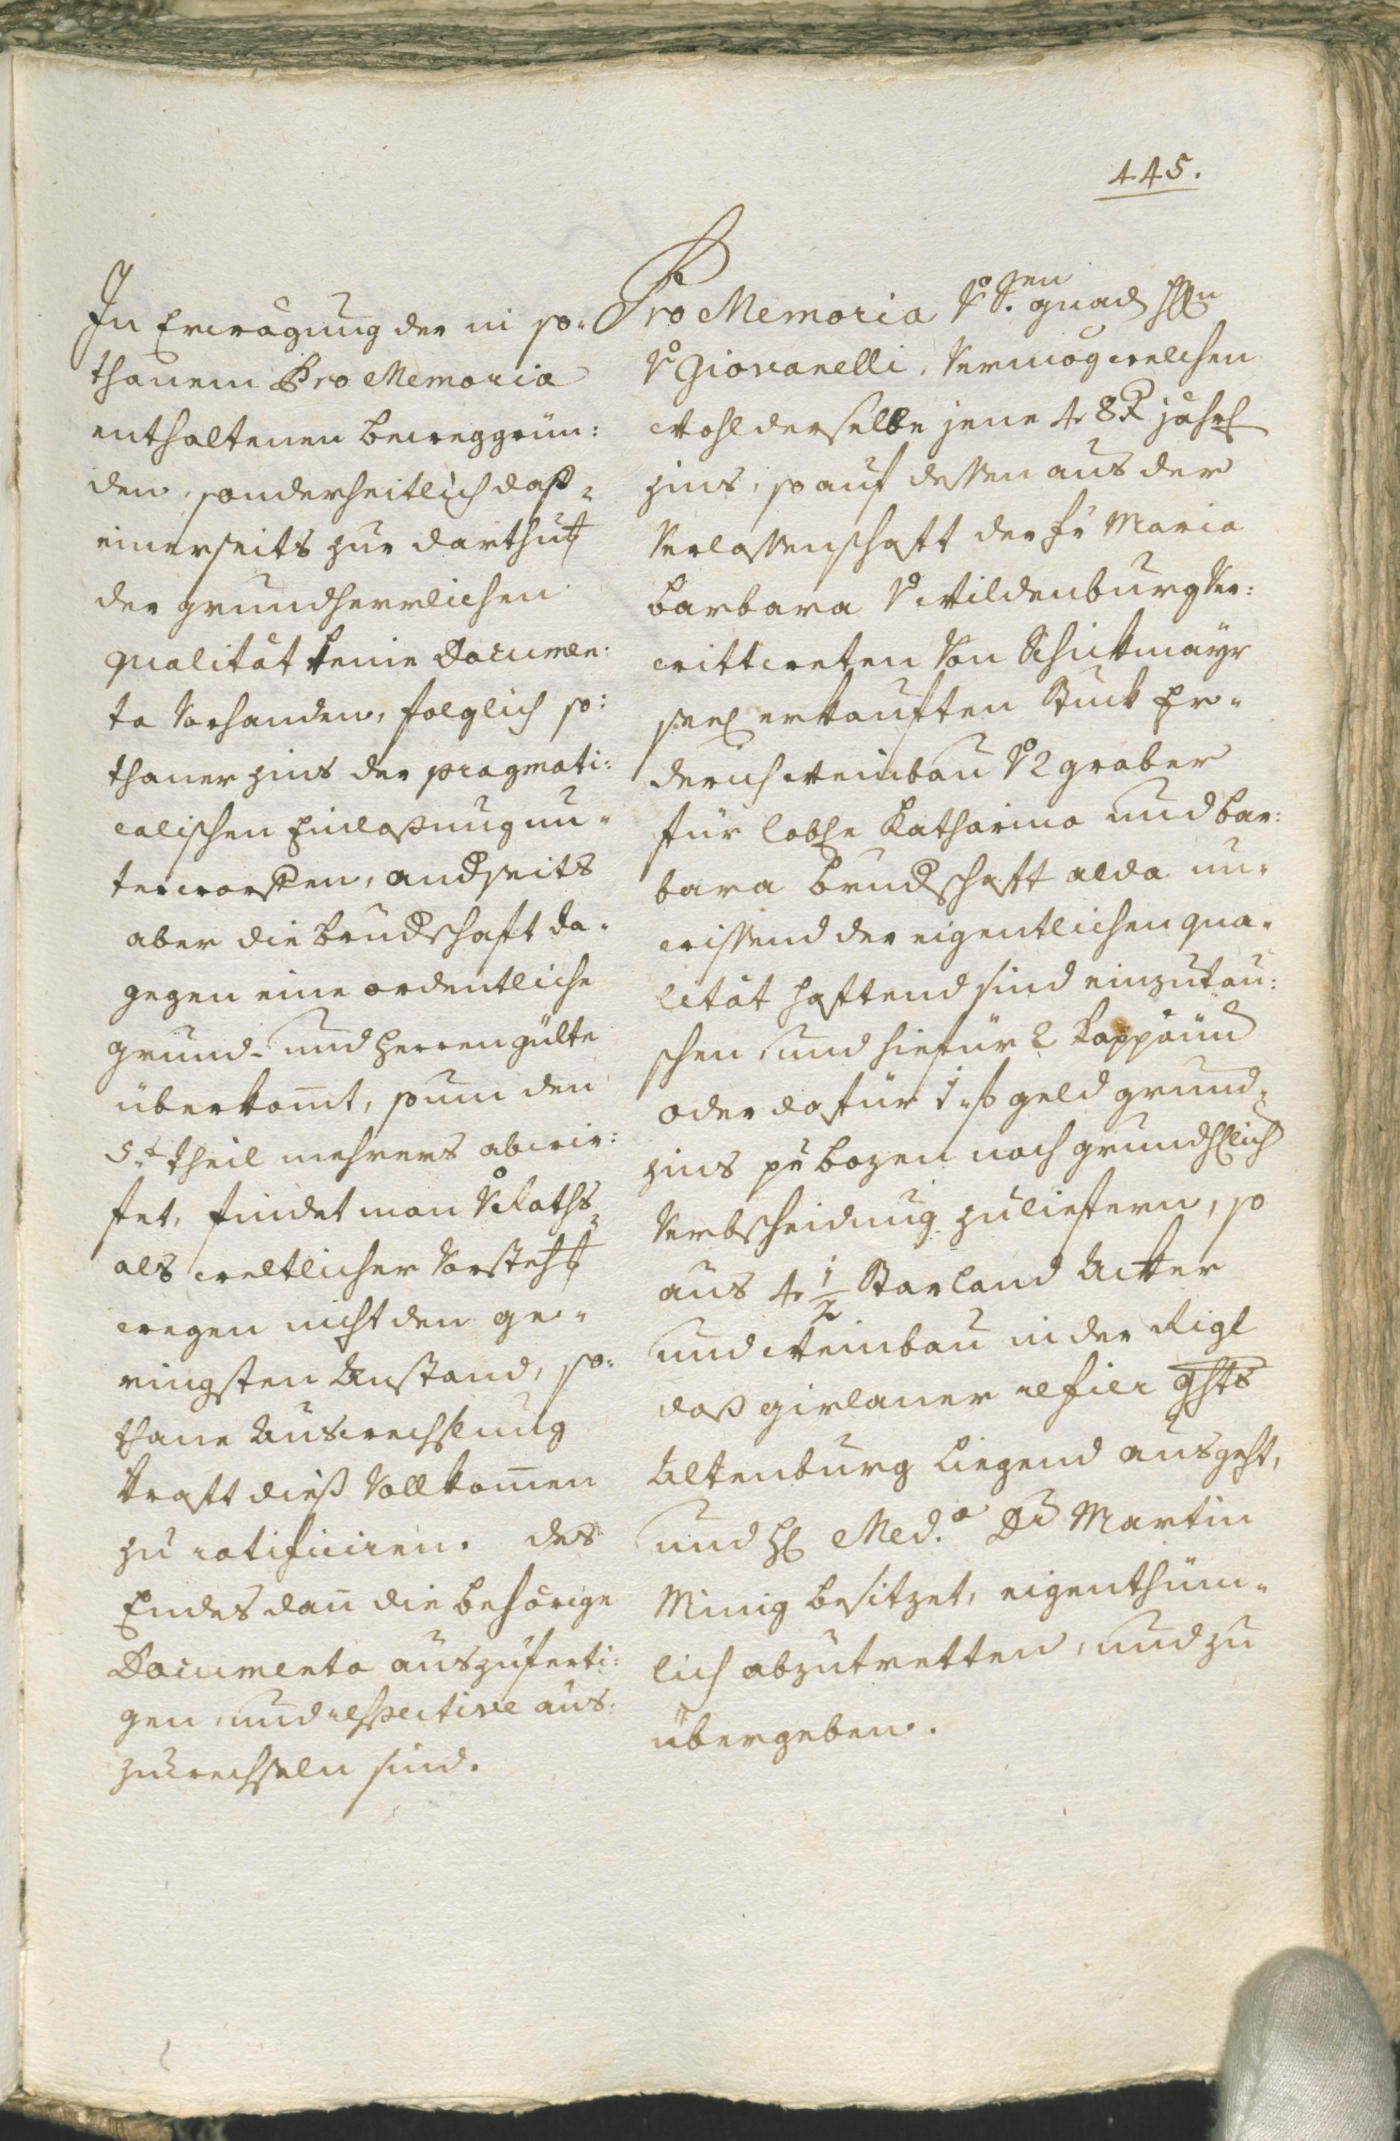 445.
In Erwägung der in so-
thanem Pro Memoria
enthaltenen beweggrün:
den, sonderheitlich daß
einerseits zur darthuung
der grundherrlichen
qualität keine Documen:
ta vorhanden, folglich so:
thaner zins der pragmati:
calischen Einlaßung un-
terworffen, andseits
aber die brudschaft da-
gegen eine ordentliche
grund- und herrengülte
überkomt, so um den
5.t theil mehrers abwir:
fet, findet man V. Raths
als weltlicher Vorstehung
wegen nicht den ge-
ringsten Anstand, so-
thane Auswechslung
kraft dieß Vollkomen
zu ratificiren. des
Endes dan die behörige
Documenta auszuferti:
gen, und respective aus
zuwechseln sind.
Pro Memoria V. gnad Hrn
V. Giovanelli, Vermög welchen
wohlderselbe jene 48 jährl
zins, so auf dessen aus der
Verlassenschaft der Fr Maria
Barbara V. Wildenburg Ver:
wittweten Von Schickmayr
seel erkauften Stuck Er-
derich Weinbau V. 2 graber
für lobe Katharina und Bar:
bara Brudschaft alda un-
wissend der eigentlichen qua-
lität haftend sind einzutau:
schen, und hiefür 2 Kappäun
oder dafür geld grund-
zins pr bozen nach grundhlich
Verbscheidung zuliefern, so
aus 4 1/2 Starland Acker
und Weinbau in der Rigl
daß girlaner refier Ghts
Altenburg liegend ausgeht,
und H Med.a Dr Martin
Minig besitzet, eigenthüm-
lich abzutretten, und zu
übergeben.